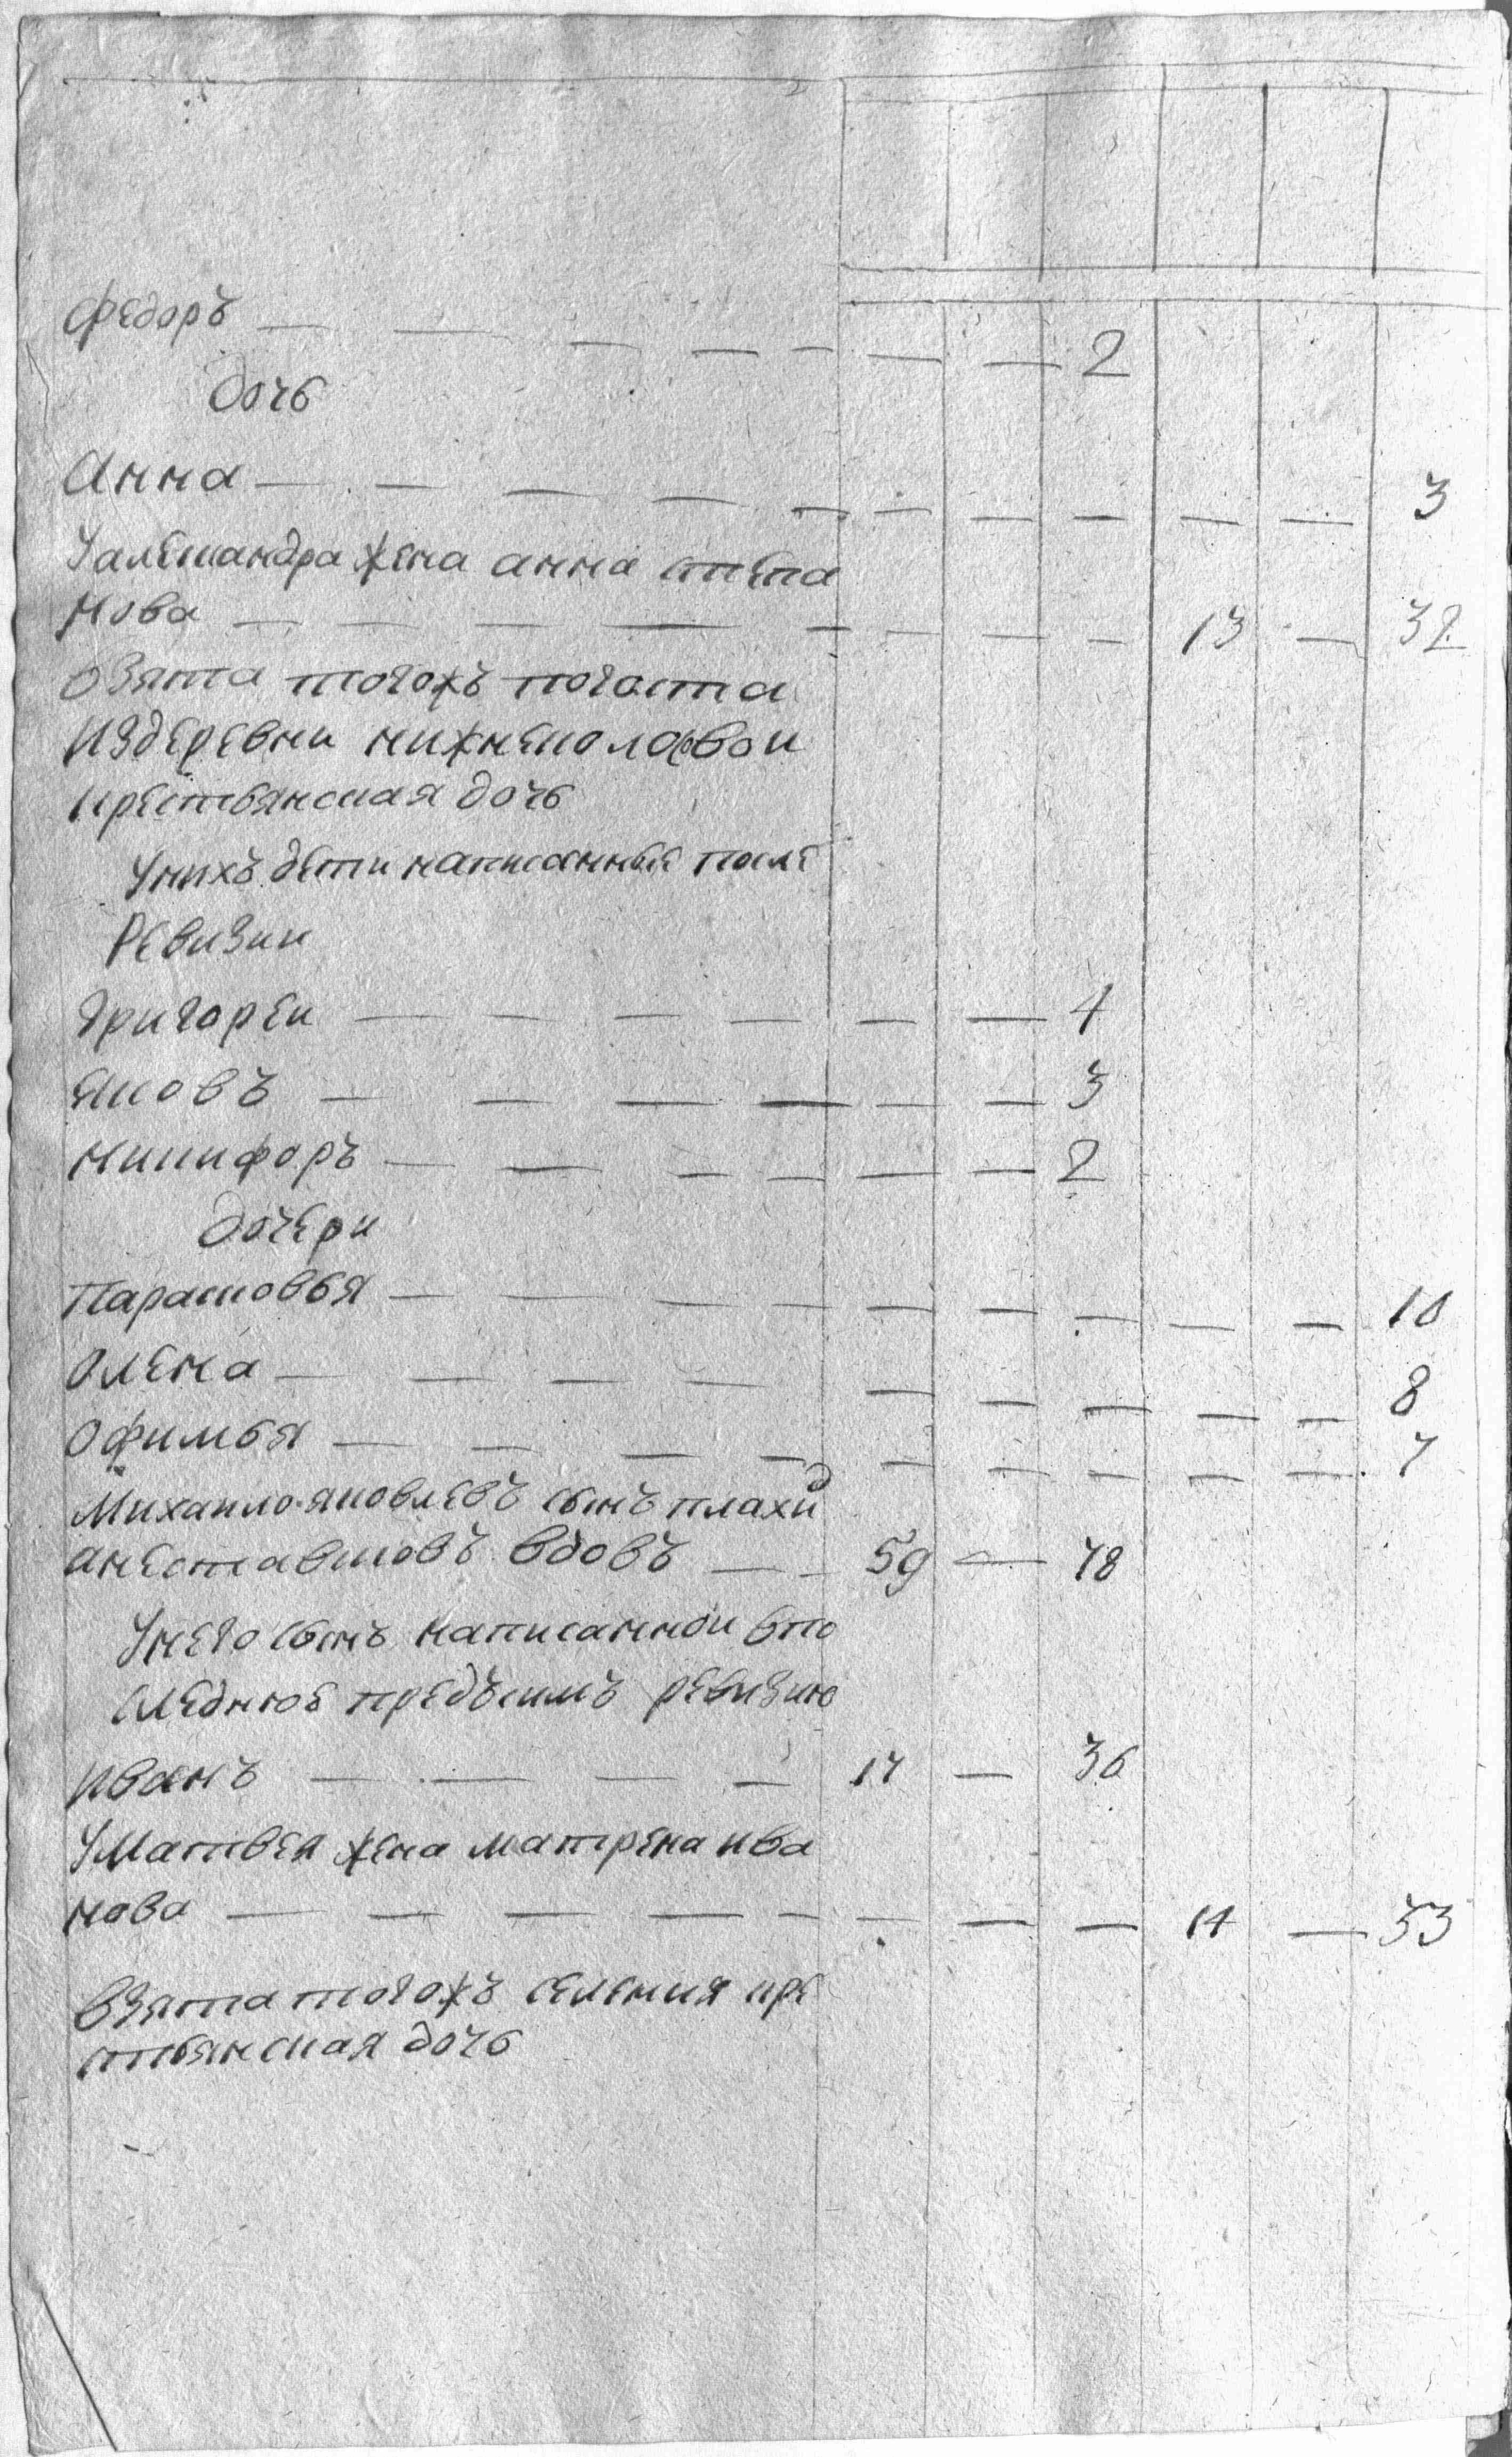 Федоръ — — — — — — — 2
дочь
Анна — — — — — — — — — — 3
Уалександра жена анна степа
нова — — — — — — — — 13 — 32
взята тогожъ погоста
издеревни нижне
крестьянская дочь
Унихъ дети написанные после
Ревизии
Григореи — — — — — — 4
яковъ — — — — — — 3
никифоръ — — — — — — 2
дочери
Парасковья — — — — — — — — — 10
олена — — — — — — — — — 8
офимья — — — — — — — — — 7
Михаило яковлевъ сынъ
вдовъ — — 59 — 78
Унего сынъ написаннои впо
следнюе предъсимъ ревизию
иванъ — — — — 17 — 36
Уматвея жена матрена ива
нова — — — — — — — — 14 — 33
взята тогожъ селения кре
стьянская дочь